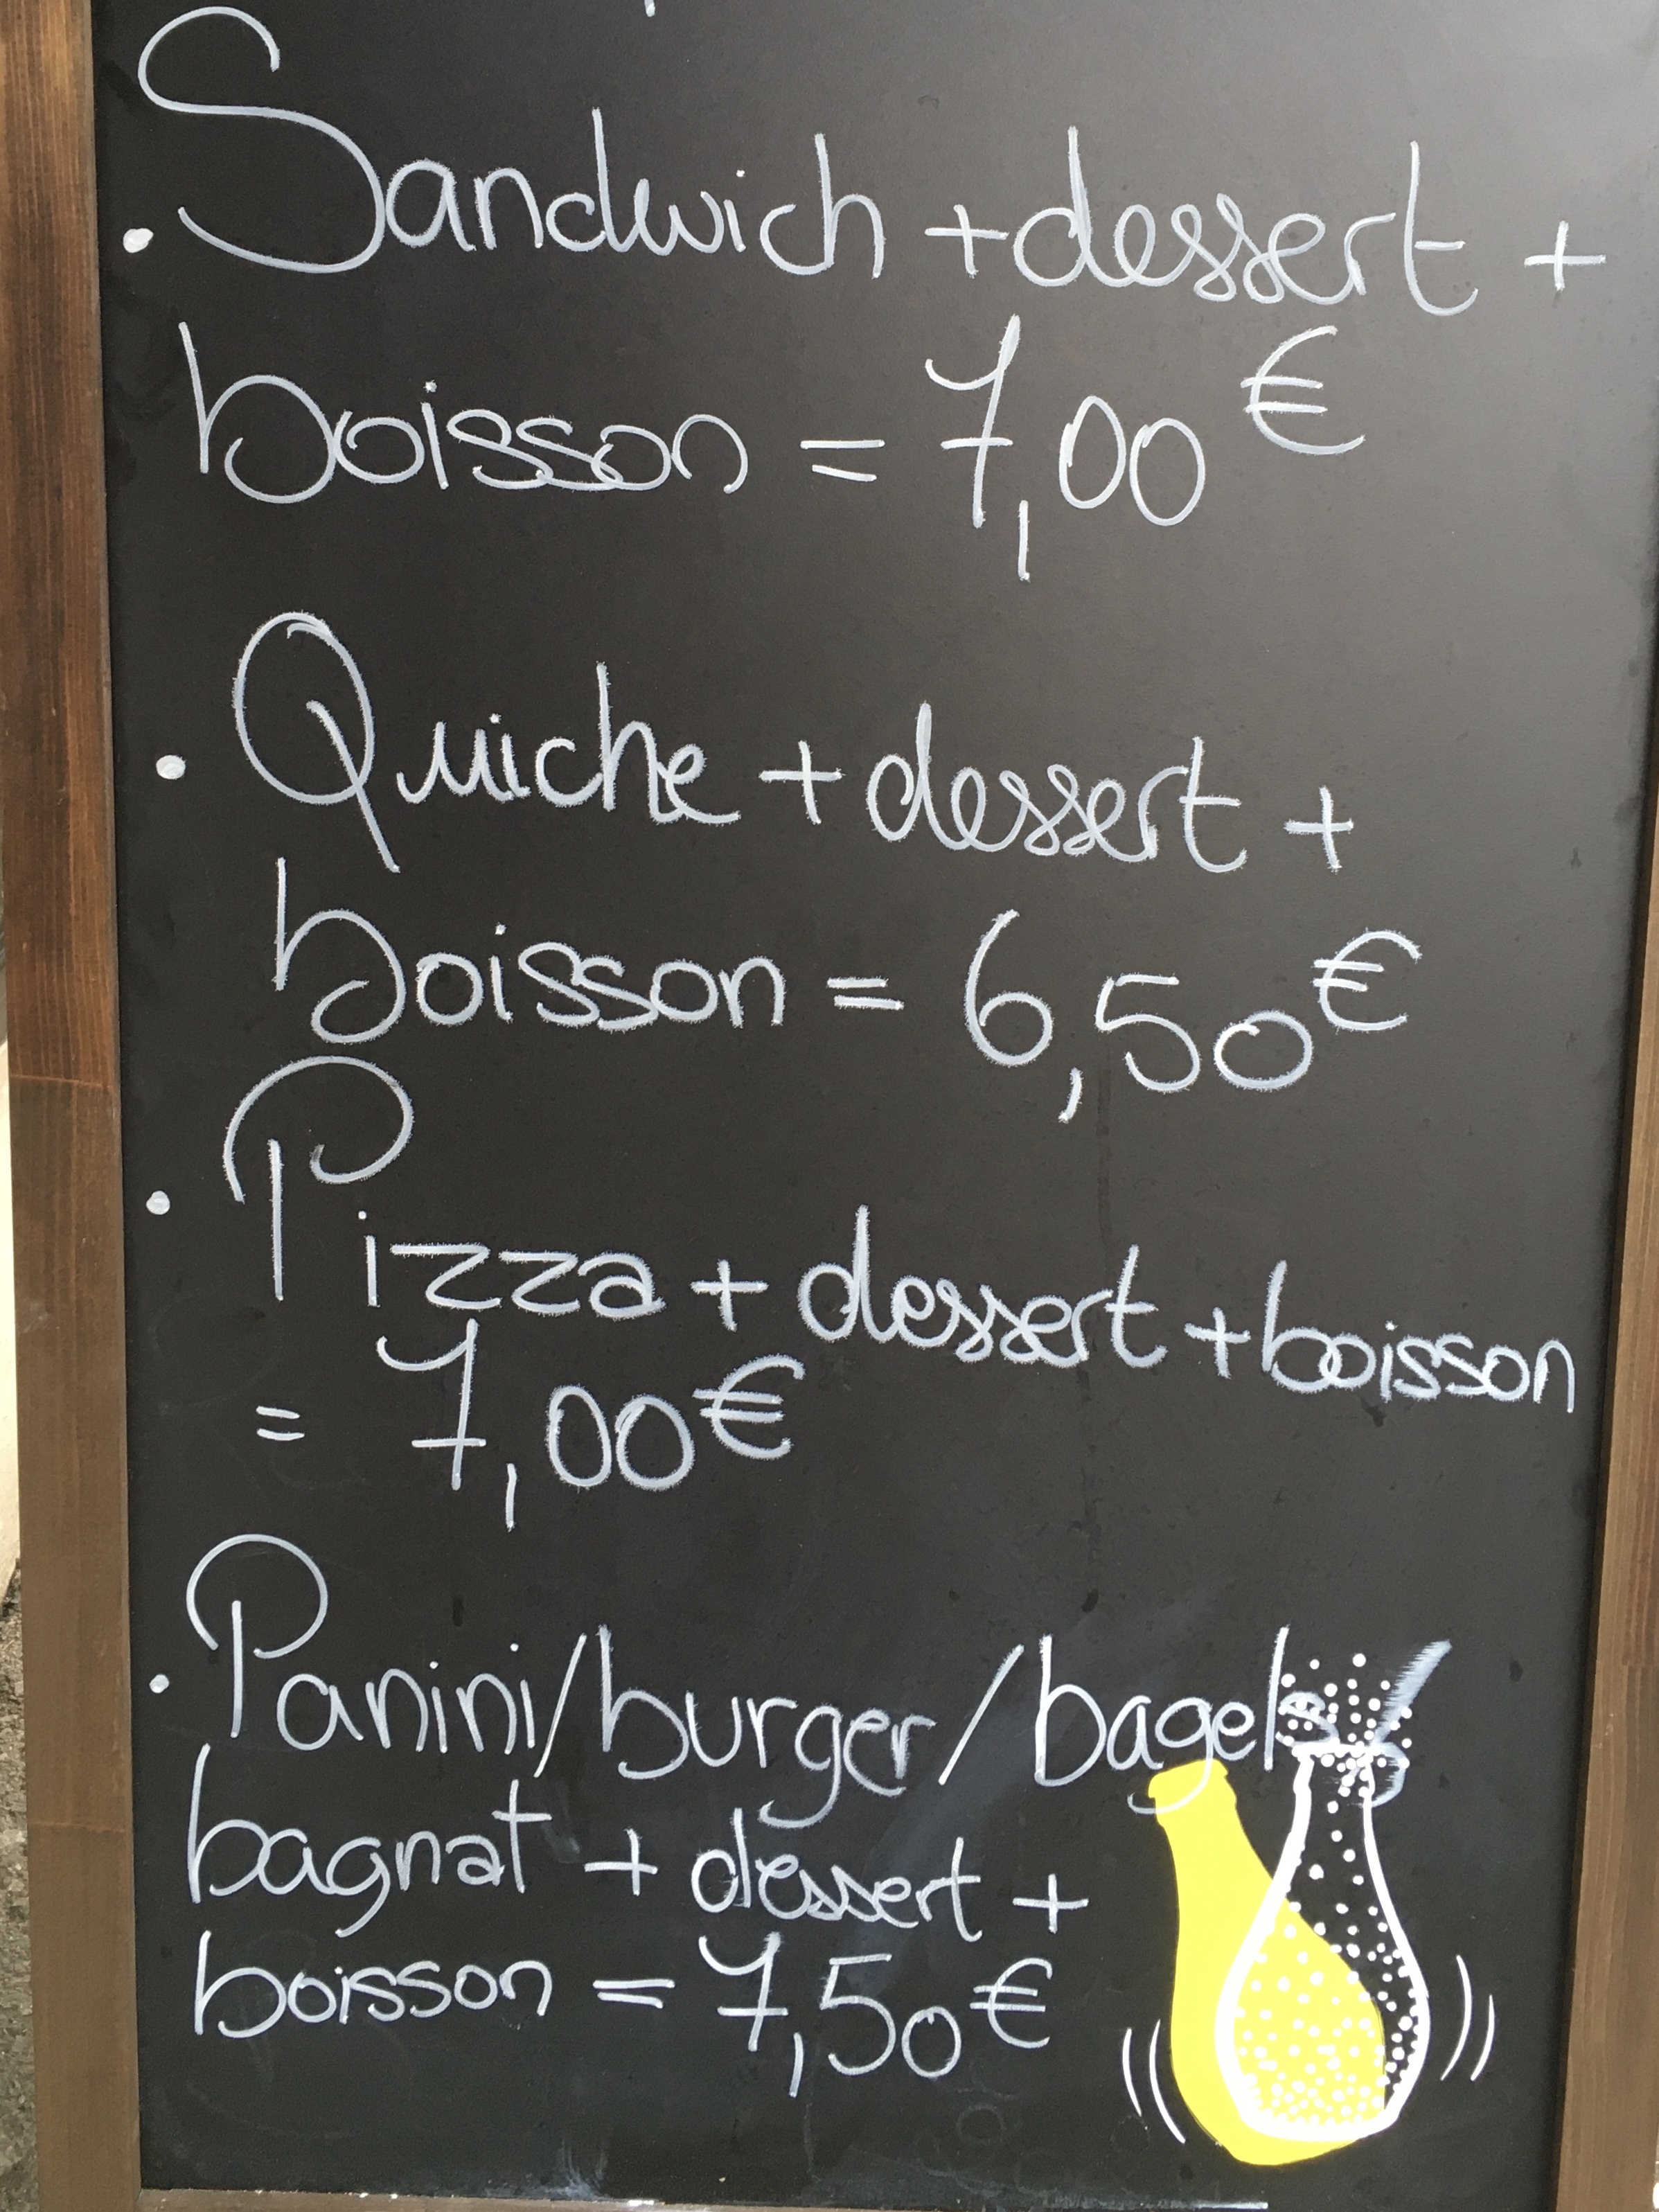 • Sandwich + dessert +
boisson = 7,00 €
• Quiche + dessert +
boisson = 6,50 €
• Pizza + dessert + boisson
= 7,00 €
• Panini/burger/bagel
bagnat + dessert +
boisson = 7,50 €